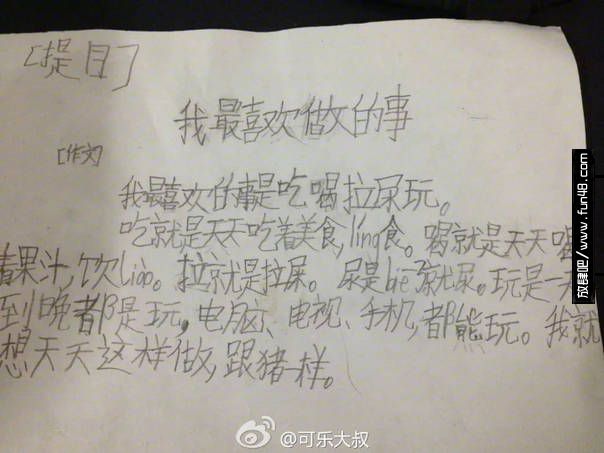 [提目]
我最喜欢做的事
[作文]
我最喜欢的事是吃喝拉尿玩。
吃就是天天吃着美食,líng食。喝就是天天喝
着果汁,饮liào。拉就是拉屎。尿是biē了就尿。玩是天
到晚都是玩,电脑、电视、手机,都能玩。我就
想天天这样做,跟猪一样。
放肆吧/www.fun48.com
@可乐大叔